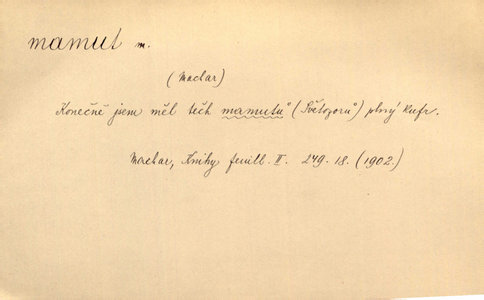 mamut m.
(Machar)
Konečně jsem měl těch mamutů (Světozorů) plný kufr.
Machar, Knihy feuill. II. 249. 18. (1902.)